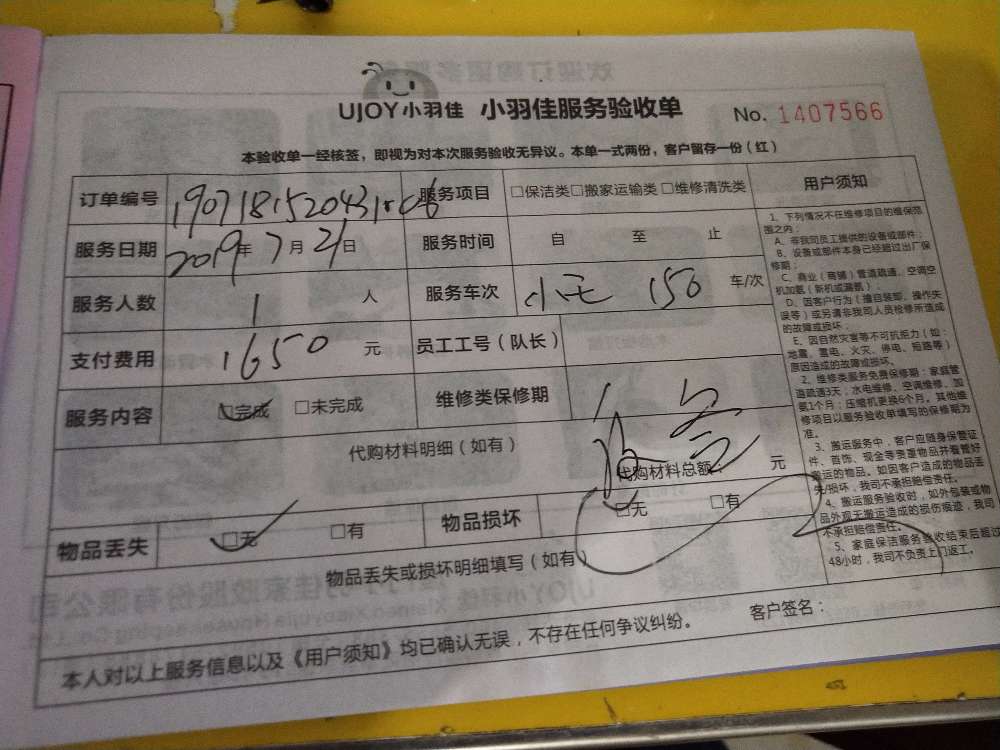 UJOY小羽佳 小羽佳服务验收单 No. 1407566
本验收单一经核签，即视为对本次服务验收无异议。本单一式两份，客户留存一份（红）
订单编号 服务项目 □保洁类□搬家运输类□维修清洗类 用户须知
服务日期 2019年7月21日 服务时间 自 至 止
服务人数 1 人 服务车次 150 车/次
支付费用 1650 元 员工工号（队长）
服务内容 □完成 □未完成 维修类保修期
代购材料明细（如有）
代购材料总额 元
物品丢失 □无 □有 物品损坏 □无 □有
物品丢失或损坏明细填写（如有）
1、下列情况不在维修项目的维保范
围之内：
A、非我司员工提供的设备或部件；
B、设备或部件本身已经超过出厂保
修期；
C、商业（商铺）管道疏通、空调空
机加氨（新机或漏氨）；
D、因客户行为（擅自装卸、操作失
误等）或另请非我司人员检修所造成
的故障或损坏；
E、因自然灾害等不可抗拒力（如：
地震、雷电、火灾、停电、短路等）
原因造成的故障或损坏。
2、维修类服务免费保修期：家庭管
道疏通3天；水电维修、空调维修、加
氨1个月；压缩机更换6个月。其他维
修项目以服务验收单填写的保修期为
准。
3、搬运服务中，客户应随身保管证
件、首饰、现金等贵重物品并看管好
搬运的物品。如因客户造成的物品丢
失/损坏，我司不承担赔偿责任。
4、搬运服务验收时，如外包装或物
品外观无搬运造成的损伤痕迹，我司
不承担赔偿责任。
5、家庭保洁服务验收结束后超过
48小时，我司不负责上门返工。
本人对以上服务信息以及《用户须知》均已确认无误，不存在任何争议纠纷。 客户签名：